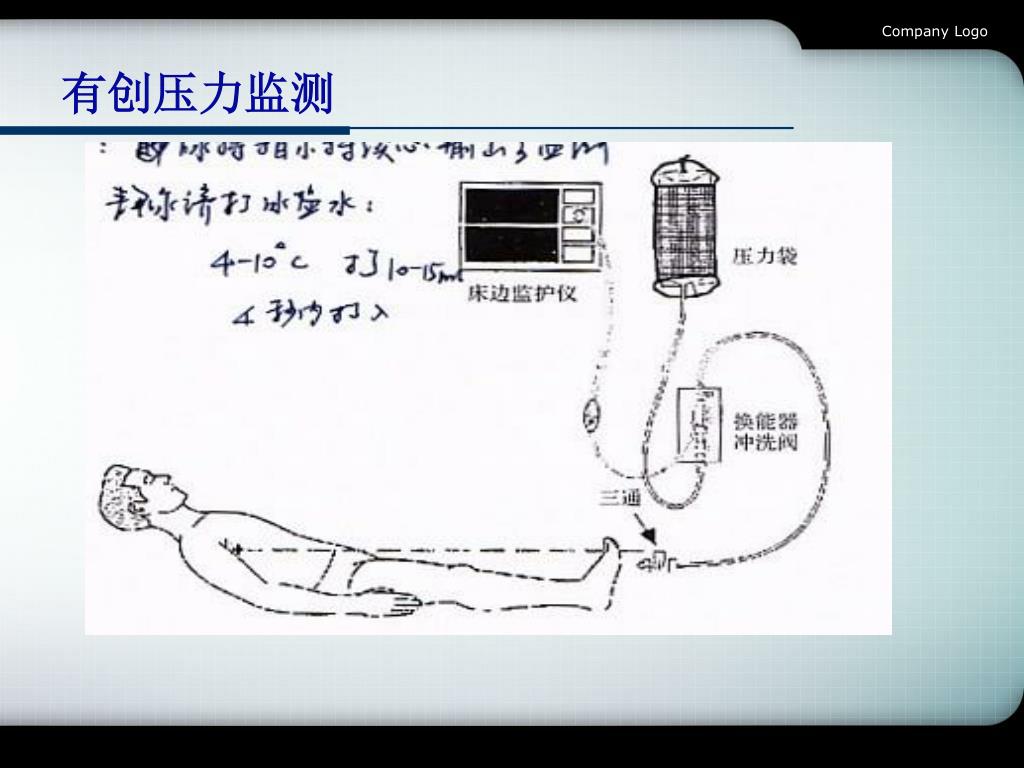 Company Logo
有创压力监测
冰盐水:
4-10°C 打10-15ml
4秒内打入
床边监护仪
压力袋
换能器
冲洗阀
三通